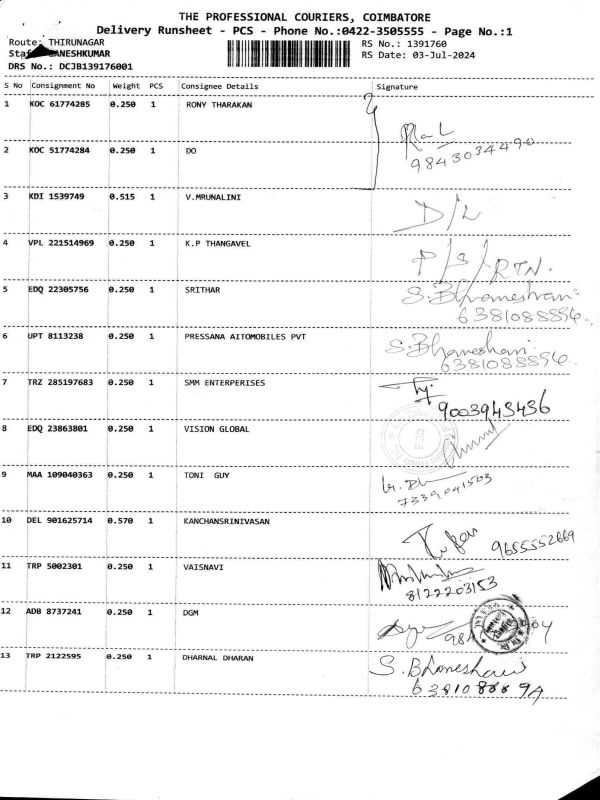 THE PROFESSIONAL COURIERS, COIMBATORE
Delivery Runsheet - PCS - Phone No.:0422-3505555 - Page No.:1
Route: THIRUNAGAR
RS No.: 1391760
GANESHKUMAR
RS Date: 03-Jul-2024
DRS No.: DCJB139176001
S No Consignment No Weight PCS Consignee Details Signature
1 KOC 61774285 0.250 1 RONY THARAKAN
2 KOC 51774284 0.250 1 DO
9843034490
3 KDI 1539749 0.515 1 V.MRUNALINI
D/L
4 VPL 221514969 0.250 1 K.P THANGAVEL
P/S/RTN.
5 EDQ 22305756 0.250 1 SRITHAR S.Bhaneshani
6381088894
6 UPT 8113238 0.250 1 PRESSANA AITOMOBILES PVT S.Bhaneshani
6381088894
7 TRZ 285197683 0.250 1 SMM ENTERPERISES
9003943436
8 EDQ 23863801 0.250 1 VISION GLOBAL
9 MAA 109040363 0.250 1 TONI GUY
7339041503
10 DEL 901625714 0.570 1 KANCHANSRINIVASAN
9655552669
11 TRP 5002301 0.250 1 VAISNAVI
8122203153
12 ADB 8737241 0.250 1 DGM
13 TRP 2122595 0.250 1 DHARNAL DHARAN S.Bhaneshani